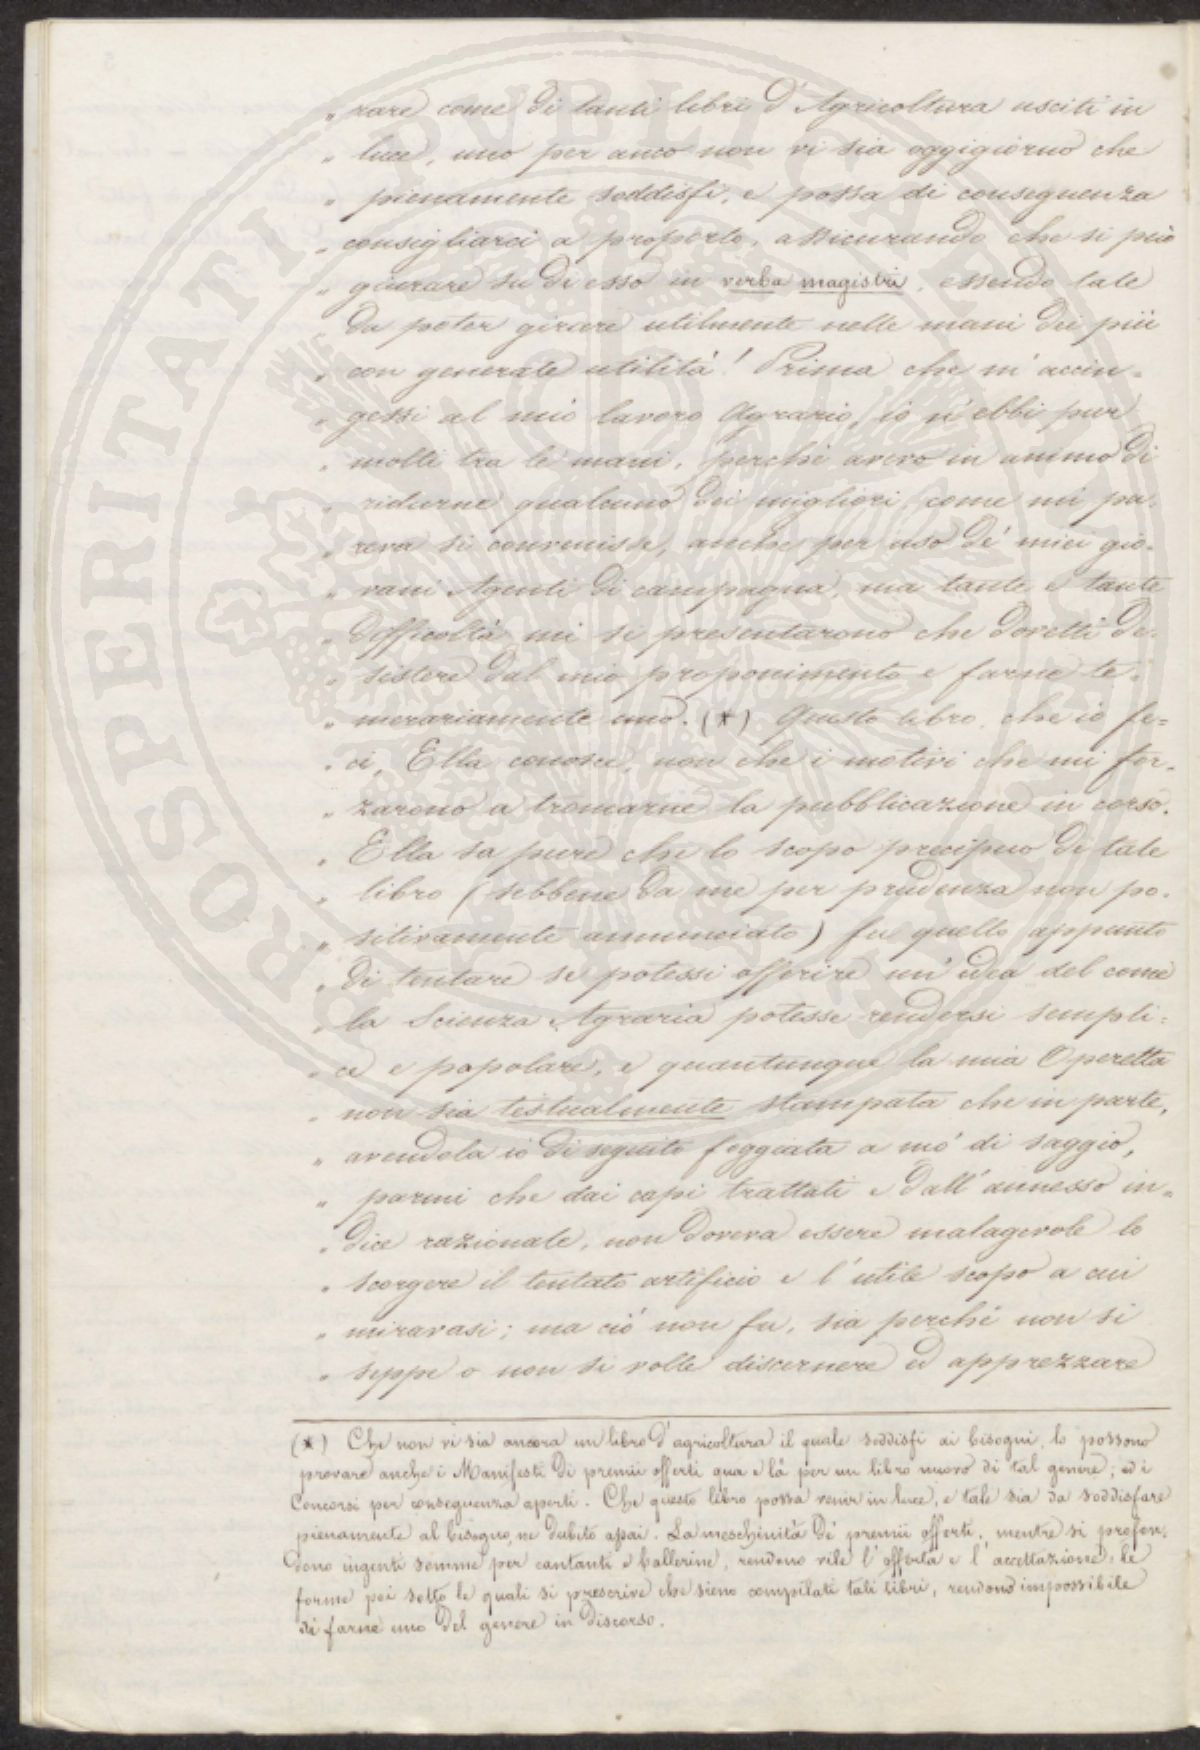 " rare come di tanti libri d'Agricoltura usciti in
" luce, uno per anco non vi sia oggigiorno che
" pienamente soddisfi, e possa di conseguenza
" consigliarci a proporlo, assicurando che si può
" giurare su di esso in verba magistri, essendo tale
" da poter girare utilmente nelle mani dei più
" con generale utilità! Prima che m'accin-
" gessi al mio lavoro Agrario, io n'ebbi pur
" molti tra le mani, perchè avevo in animo di
" ridurne qualcuno dei migliori, come mi pa-
" reva si convenisse, anche per uso de' miei gio-
" vani Agenti di campagna, ma tante e tante
" difficoltà mi si presentarono che dovetti de-
" sistere dal mio proponimento e farne te-
" merariamente uno. (*) Questo libro, che io fe=
" ci, Ella conosce, non che i motivi che mi for-
" zarono a troncarne la pubblicazione in corso.
" Ella sa pure che lo scopo precipuo di tale
" libro (sebbene da me per prudenza non po-
" sitivamente annunciato) fu quello appunto
" di tentare se potessi offerire un'idea del come
" la Scienza Agraria potesse rendersi sempli=
" ce e popolare, e quantunque la mia Operetta
" non sia testualmente stampata che in parte,
" avendola io di seguito foggiata a mo' di saggio,
" parmi che dai capi trattati e dall'annesso in=
" dice razionale, non doveva essere malagevole lo
" scorgere il tentato artificio e l'utile scopo a cui
" miravasi; ma ciò non fu, sia perchè non si
" seppe o non si volle discernere ed apprezzare
(*) Che non vi sia ancora un libro d'agricoltura il quale soddisfi ai bisogni, lo possono
provare anche i Manifesti di premii offerti qua e là per un libro nuovo di tal genere; ed i
Concorsi per conseguenza aperti. Che questo libro possa venir in luce, e tale sia da soddisfare
pienamente al bisogno, ne dubito assai. La meschinità de' premii offerti, mentre si profon-
dono ingenti somme per cantanti e ballerine, rendono vile l'offerta e l'accettazione; le
forme poi sotto le quali si prescrive che sieno compilati tali libri, rendono impossibile
di farne uno del genere in discorso.
PROSPERITATI PVBLICAE